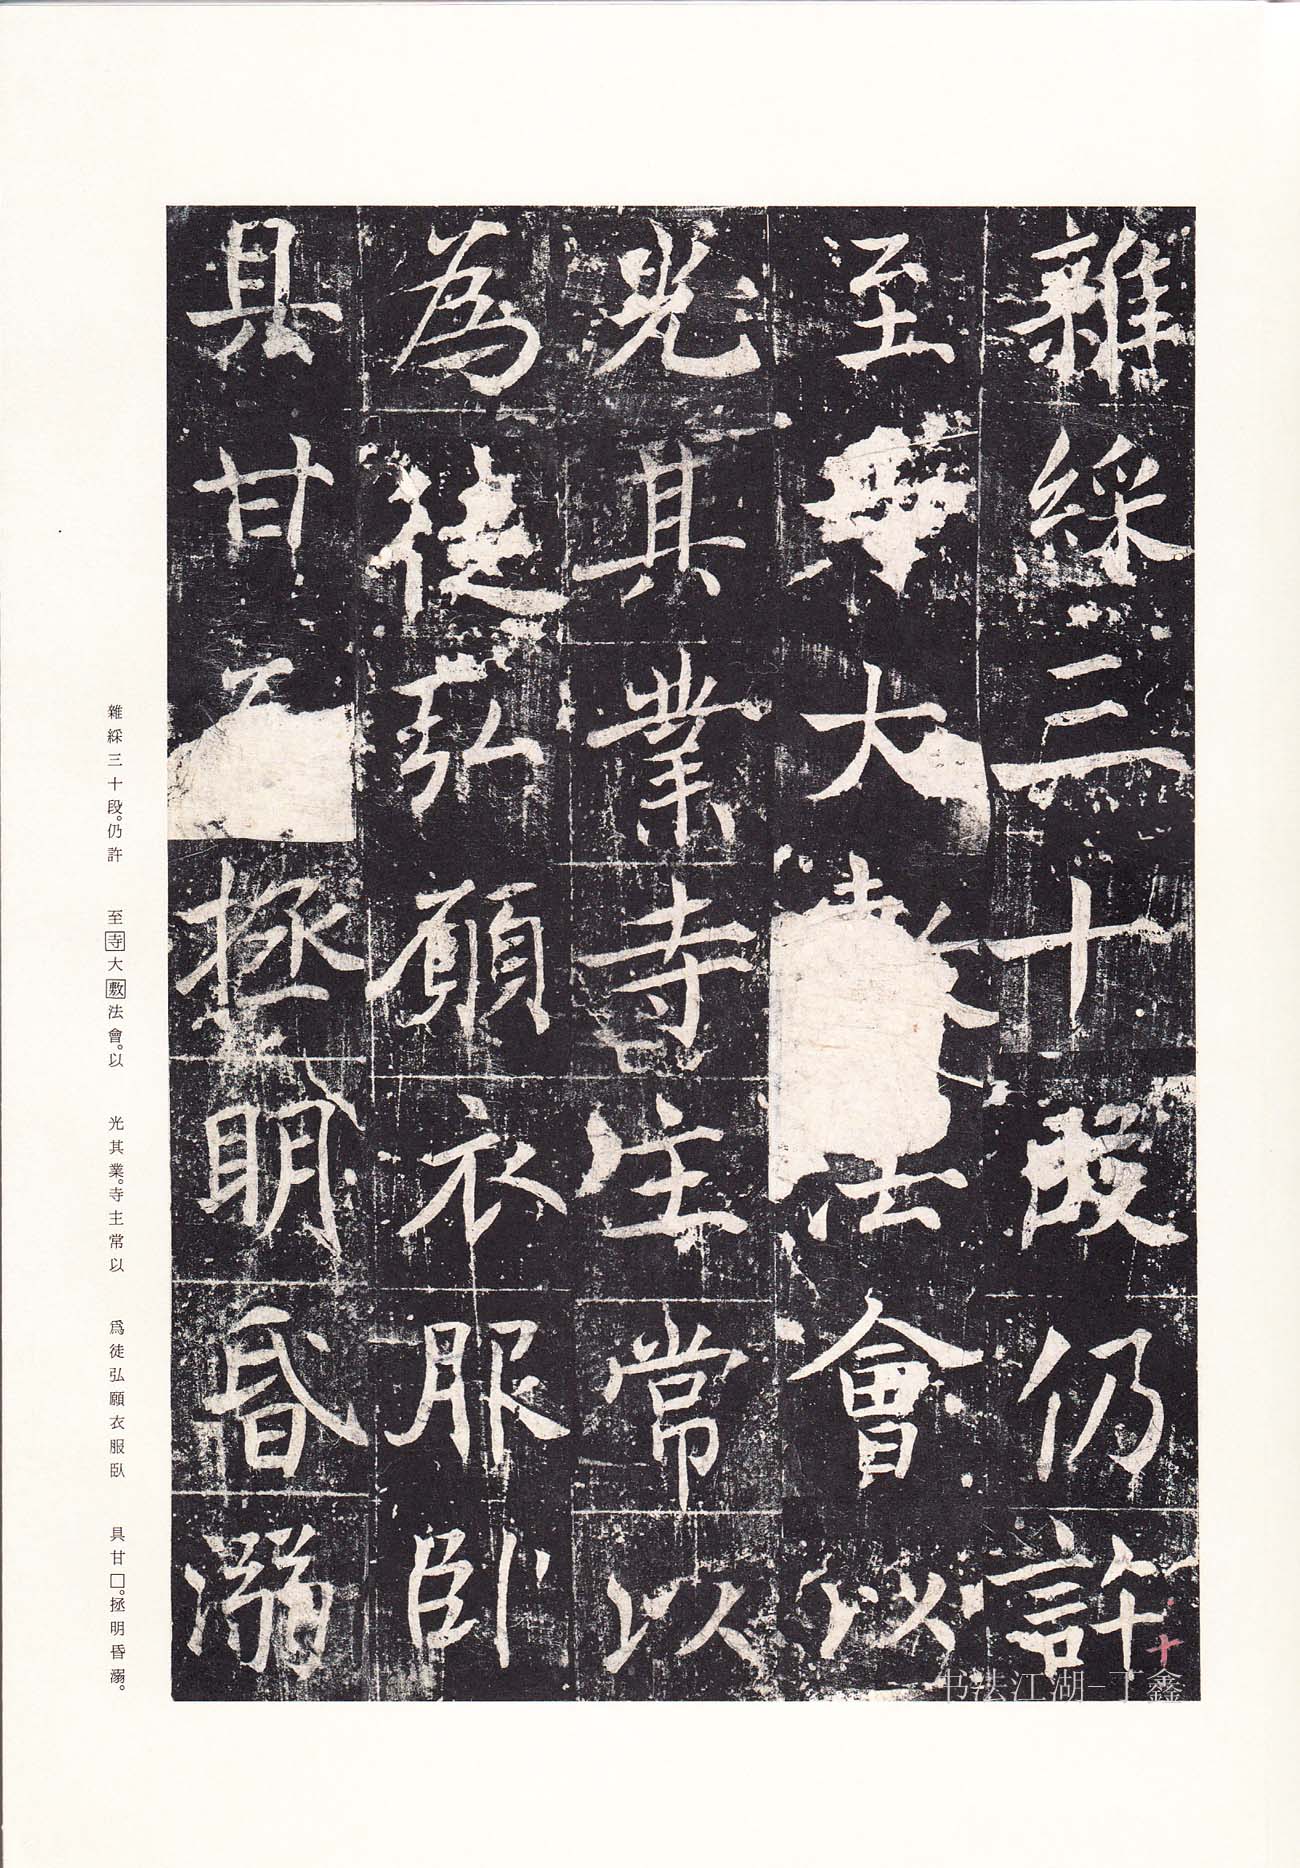 雜綵三十段仍許
至寺大敷法會以
光其業寺主常以
為徒弘願衣服臥
具甘
拯明昏溺
雜綵三十段。仍許
至寺大敷法會。以
光其業。寺主常以
爲徒弘願衣服臥
具甘□。拯明昏溺。
十
书法江湖-丁鑫